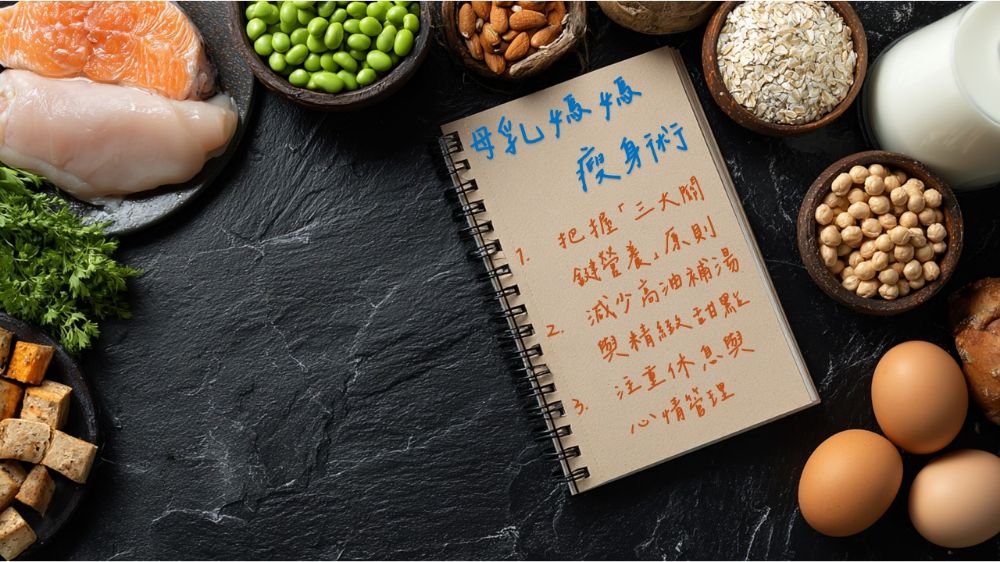 母乳媽媽
瘦身術
1. 把握「三大關
鍵營養」原則
2. 減少高油補湯
與精緻甜點
3. 注重休息與
心情管理